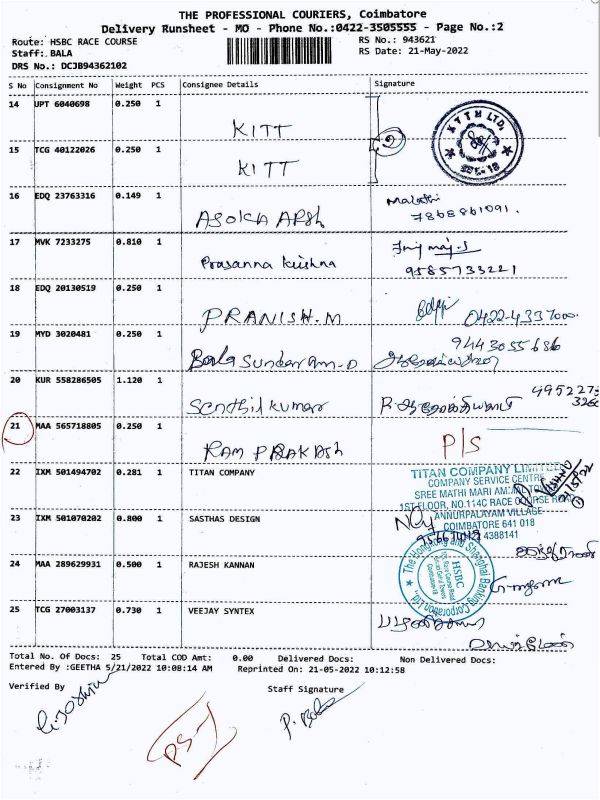 THE PROFESSIONAL COURIERS, Coimbatore
Delivery Runsheet - MO - Phone No.:0422-3505555 - Page No.:2
Route: HSBC RACE COURSE RS No.: 943621
Staff: BALA RS Date: 21-May-2022
DRS No.: DCJB94362102
S No Consignment No Weight PCS Consignee Details Signature
14 UPT 6040698 0.250 1 KITT
15 TCG 40122026 0.250 1 KITT
16 EDQ 23763316 0.149 1 ASOKA APSh Malathi
7868861091.
17 MVK 7233275 0.810 1 Prasanna Krishna
9585733221
18 EDQ 20130519 0.250 1 PRANISH.M 0422-4337000.
19 MYD 3020481 0.250 1 Bala Sundaram-D 9443055686
20 KUR 558286505 1.120 1 Senthil kumar
21 MAA 565718805 0.250 1 RAM PRAKASh P/S
22 IXM 501494702 0.281 1 TITAN COMPANY
TITAN COMPANY LIMITED
COMPANY SERVICE CENTRE
SREE MATHI MARI AMMAL
1ST FLOOR, NO.114C RACE COURSE ROAD
ANNURPALAYAM VILLAGE
COIMBATORE 641 018
4388141
23 IXM 501070202 0.800 1 SASTHAS DESIGN
24 MAA 289629931 0.500 1 RAJESH KANNAN
The Hongkong and Shanghai Banking Corporation Ltd.
HSBC
25 TCG 27003137 0.730 1 VEEJAY SYNTEX
Total No. Of Docs: 25 Total COD Amt: 0.00 Delivered Docs: Non Delivered Docs:
Entered By :GEETHA 5/21/2022 10:08:14 AM Reprinted On: 21-05-2022 10:12:58
Verified By Staff Signature
P. Bala
PS-1